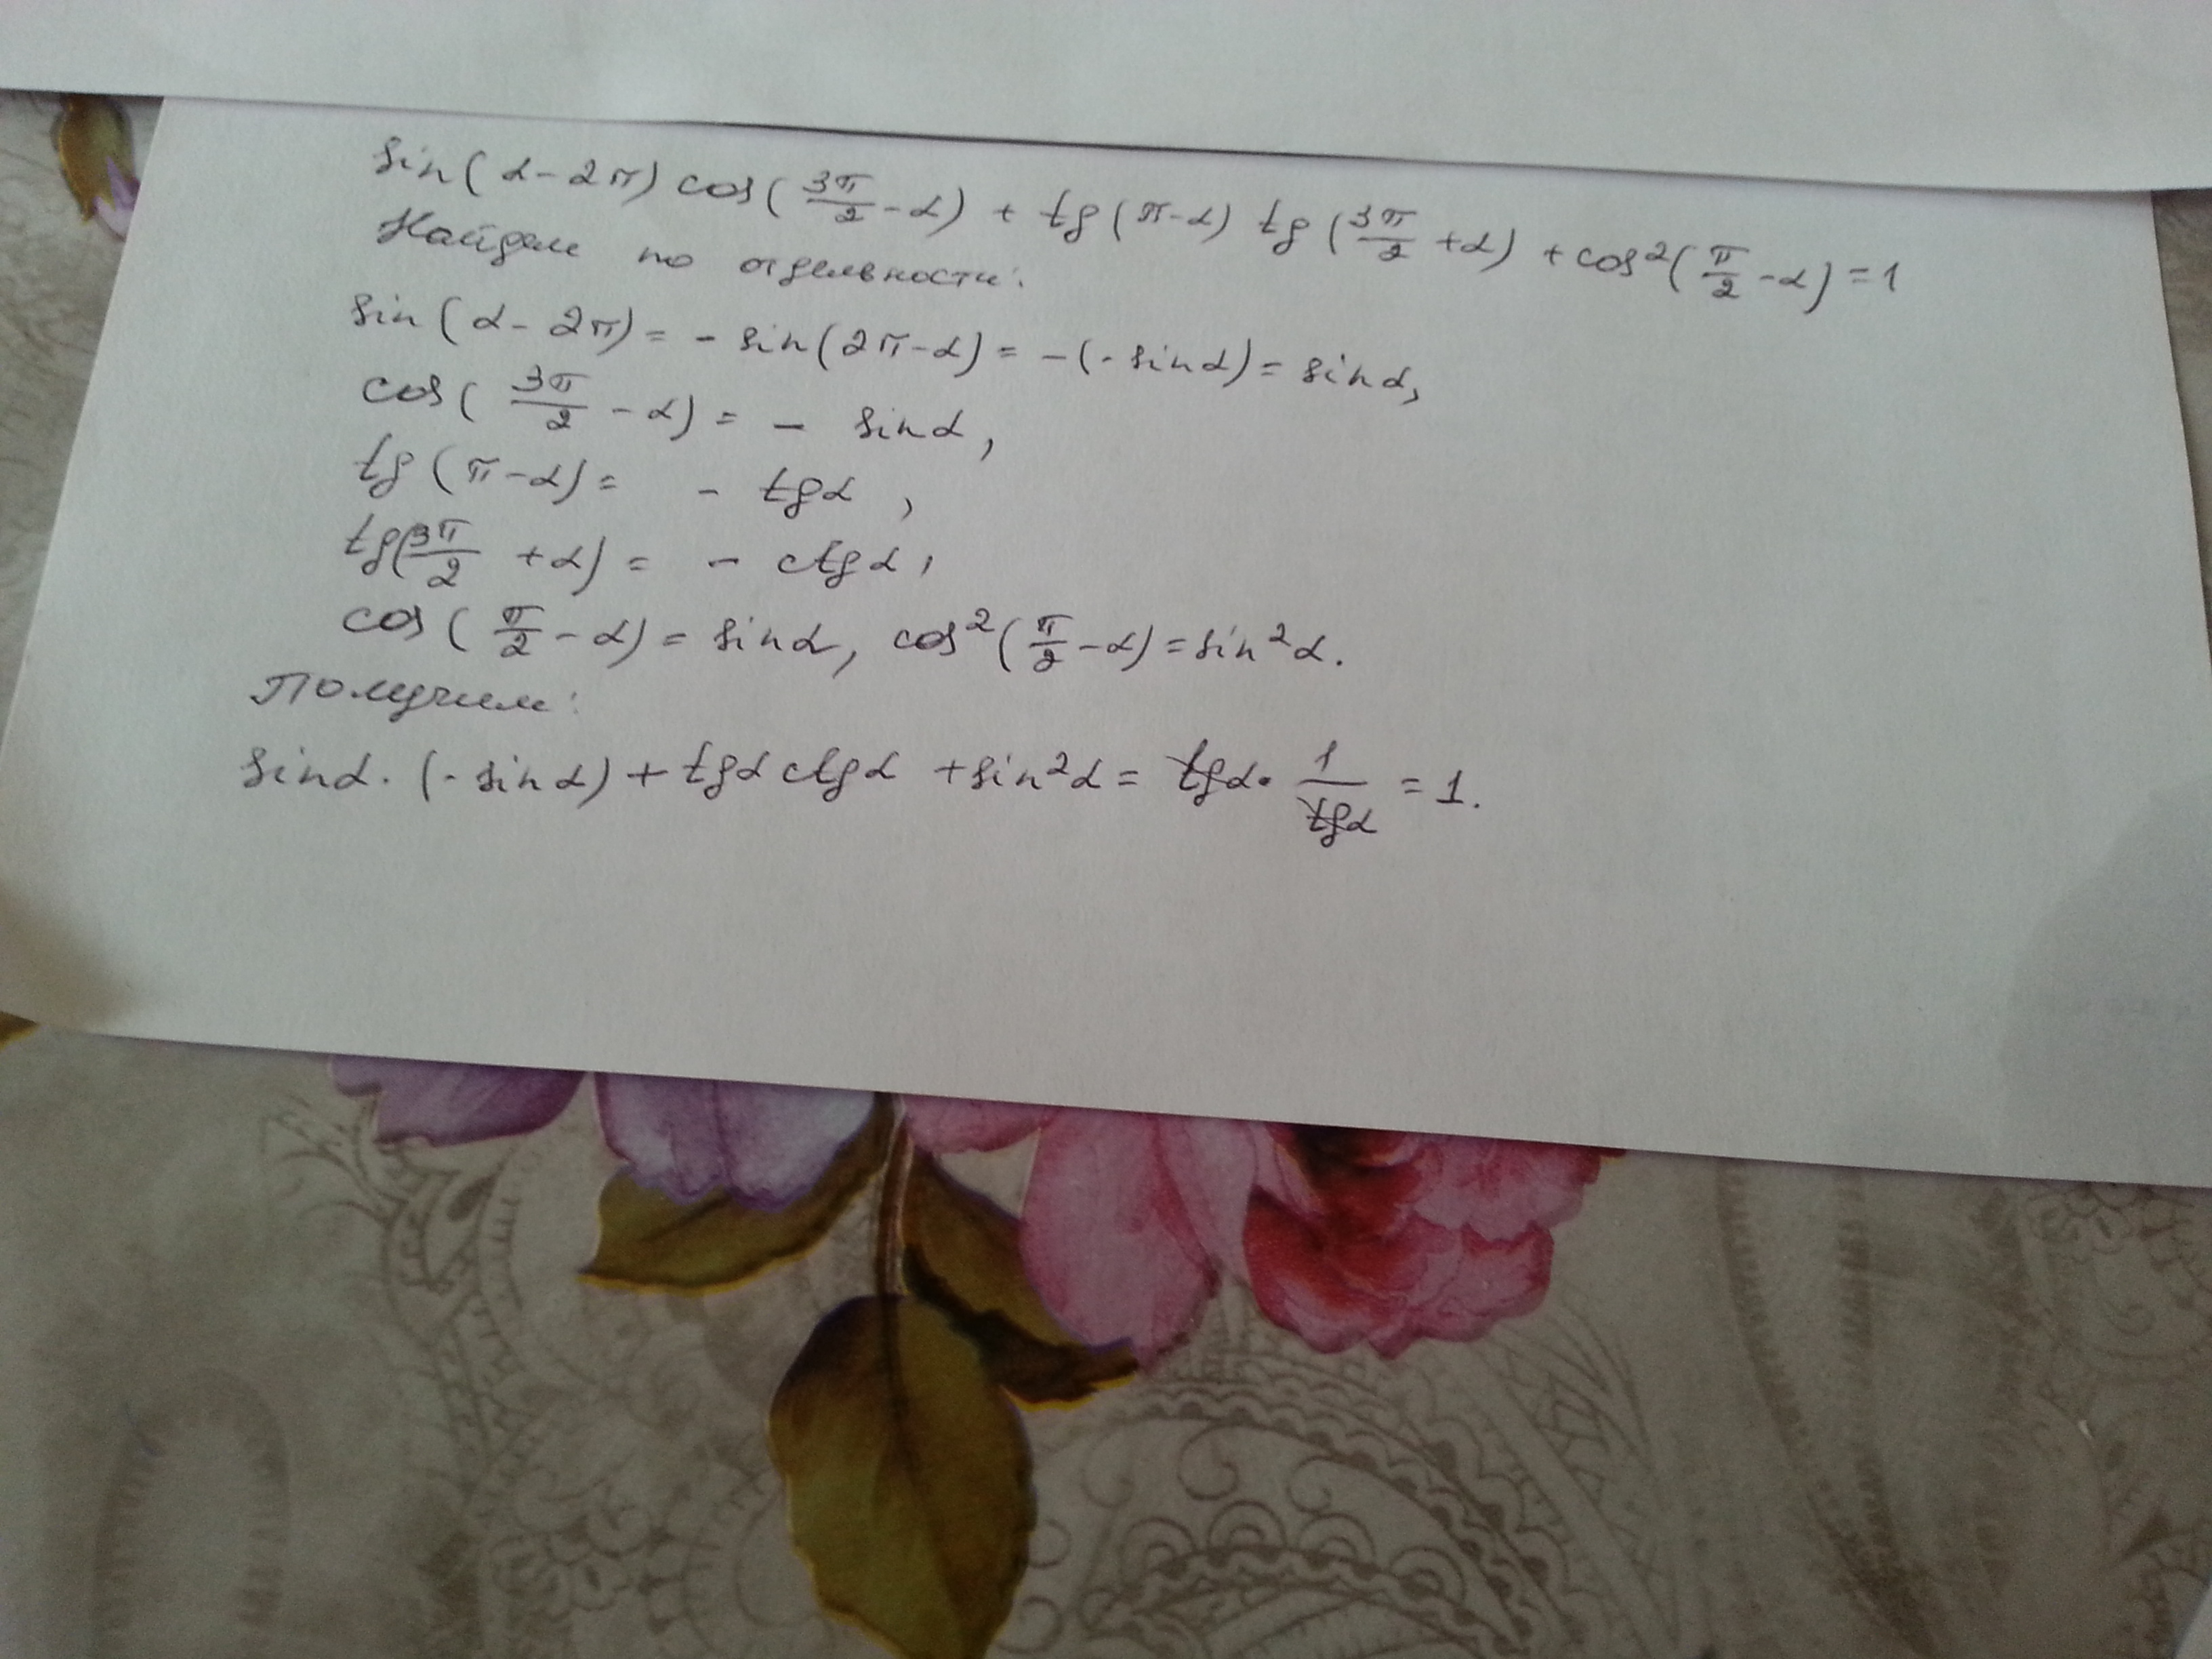 sin(α-2π) cos(3π/2-α) + tg(π-α) tg(3π/2+α) + cos²(π/2-α) = 1
Найдем по отдельности:
sin(α-2π) = -sin(2π-α) = -(-sinα) = sinα,
cos(3π/2-α) = - sinα,
tg(π-α) = - tgα,
tg(3π/2+α) = - ctgα,
cos(π/2-α) = sinα, cos²(π/2-α) = sin²α.
Получим:
sinα·(-sinα) + tgα ctgα + sin²α = tgα·1/tgα = 1.